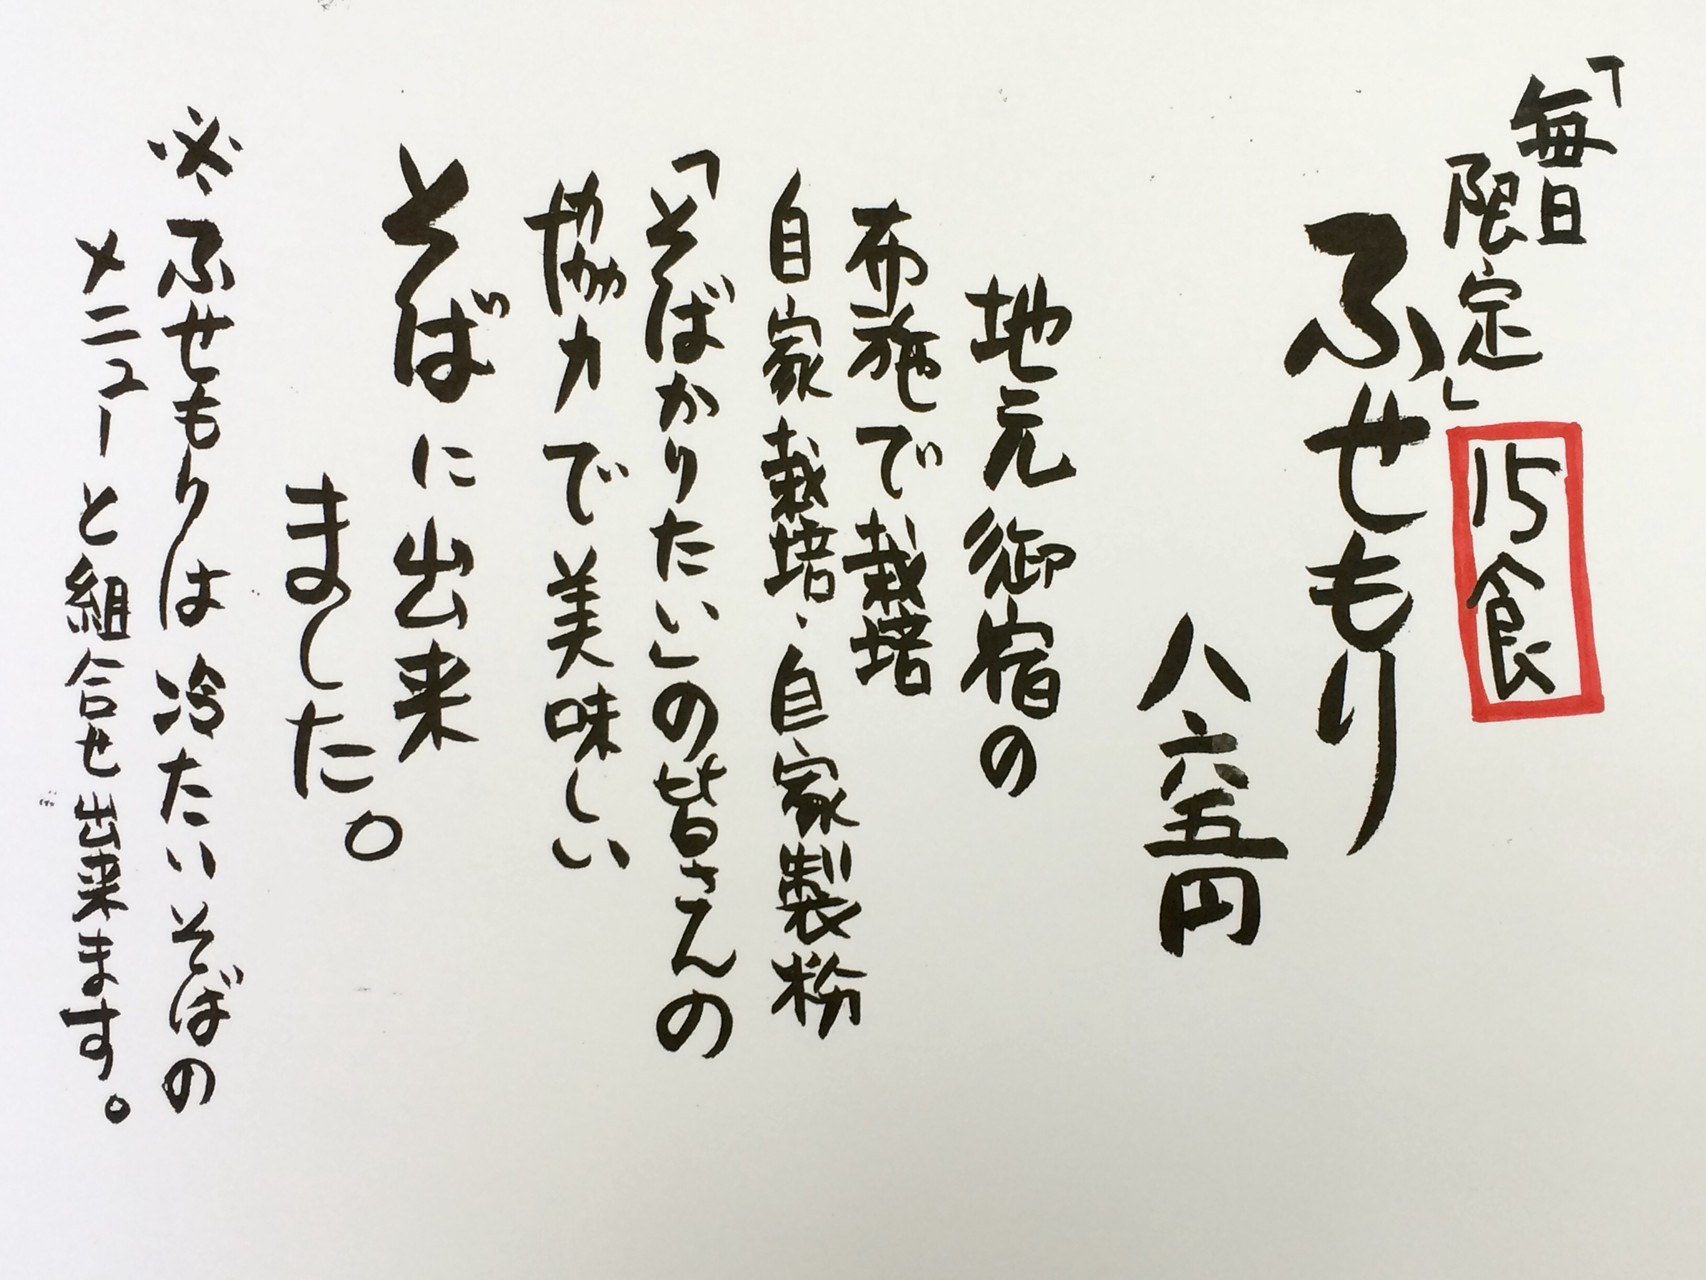 「毎日
限定」
15食
ふせもり
八六五円
地元御宿の
布施で栽培
自家栽培・自家製粉
「そばかりたい」の皆さんの
協力で美味しい
そばに出来
ました。
※ふせもりは冷たいそばの
メニューと組合せ出来ます。